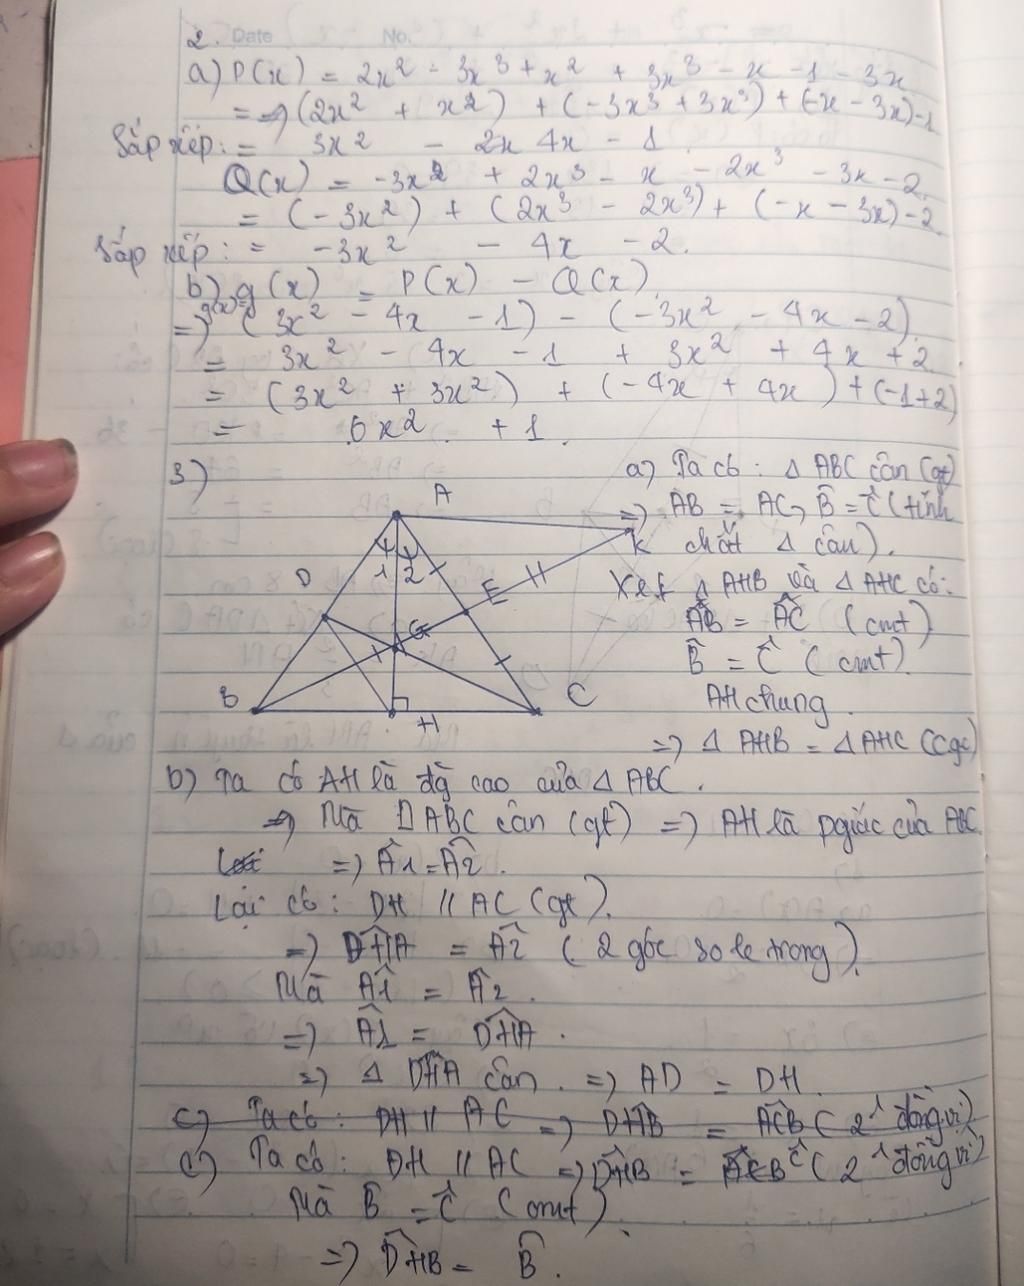 Date No.
2.
a) P(x) = 2x² - 3x³ + x² + 3x³ - x - 1 - 3x
= (2x² + x²) + (-3x³ + 3x³) + (-x - 3x) - 1
Sắp xếp: = 3x² - 4x - 1.
Q(x) = -3x² + 2x³ - x - 2x³ - 3x - 2
= (-3x²) + (2x³ - 2x³) + (-x - 3x) - 2.
Sắp xếp: = -3x² - 4x - 2.
b) g(x) = P(x) - Q(x)
=> g(x) = (3x² - 4x - 1) - (-3x² - 4x - 2)
= 3x² - 4x - 1 + 3x² + 4x + 2
= (3x² + 3x²) + (-4x + 4x) + (-1+2)
= 6x² + 1.
3)
A
K
D
1 2
E
G
B
H
C
a) Ta có: Δ ABC cân (gt)
=> AB = AC, B̂ = Ĉ (tính
chất Δ cân).
Xét Δ AHB và Δ AHC có:
AB = AC (cmt)
B̂ = Ĉ (cmt)
AH chung.
=> Δ AHB = Δ AHC (cgc)
b) Ta có AH là đg cao của Δ ABC.
=> Mà Δ ABC cân (gt) => AH là pgiác của ABC.
=> Â1 = Â2.
Lại có: DH // AC (gt).
=> DĤA = Â2 (2 góc so le trong).
Mà Â1 = Â2.
=> Â1 = DĤA.
=> Δ DHA cân. => AD = DH.
c) Ta có: DH // AC => DĤB = AĈB (2 ^ đồng vị)
c) Ta có: DH // AC => DĤB = Ĉ (2 ^ đồng vị)
Mà B̂ = Ĉ (cmt).
=> DĤB = B̂.